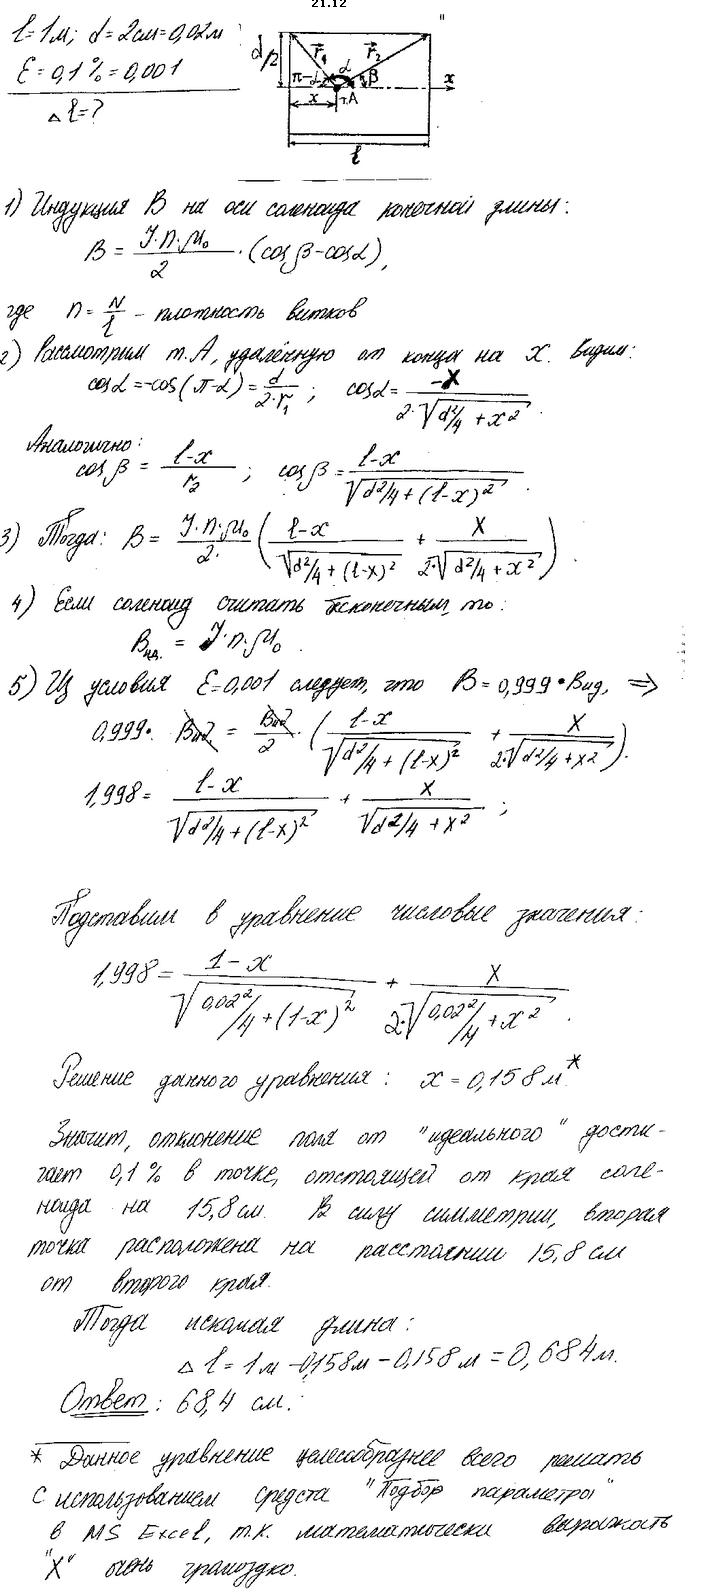 21.12
l = 1м; d = 2см = 0,02м
ε = 0,1% = 0,001
Δl = ?
d/2 r₁ α r₂ "
π-α β x
x т.A
l
1) Индукция B на оси соленоида конечной длины:
B = J·n·μ₀/2 · (cos β - cos α),
где n = N/l - плотность витков
2) Рассмотрим т.A, удалённую от конца на x. Видим:
cos α = -cos(π-α) = d/2·r₁; cos α = -x/2·√(d²/4 + x²).
Аналогично:
cos β = l-x/r₂; cos β = l-x/√(d²/4 + (l-x)²)
3) Тогда: B = J·n·μ₀/2· (l-x/√(d²/4 + (l-x)²) + x/2·√(d²/4 + x²)).
4) Если соленоид считать бесконечным, то:
Bид. = J·n·μ₀.
5) Из условия ε = 0,001 следует, что B = 0,999·Bид, ⇒
0,999· Bид = Bид/2 · (l-x/√(d²/4 + (l-x)²) + x/2·√(d²/4 + x²)).
1,998 = l-x/√(d²/4 + (l-x)²) + x/√(d²/4 + x²);
Подставим в уравнение числовые значения:
1,998 = 1-x/√(0,02²/4 + (1-x)²) + x/2·√(0,02²/4 + x²).
Решение данного уравнения: x = 0,158м*
Значит, отклонение поля от "идеального" дости-
гает 0,1% в точке, отстоящей от края соле-
ноида на 15,8см. В силу симметрии, вторая
точка расположена на расстоянии 15,8см
от второго края.
Тогда искомая длина:
Δl = 1м - 0,158м - 0,158м = 0,684м.
Ответ: 68,4 см.
* Данное уравнение целесообразнее всего решать
с использованием средства "Подбор параметра"
в MS Excel, т.к. математически выражать
"X" очень громоздко.